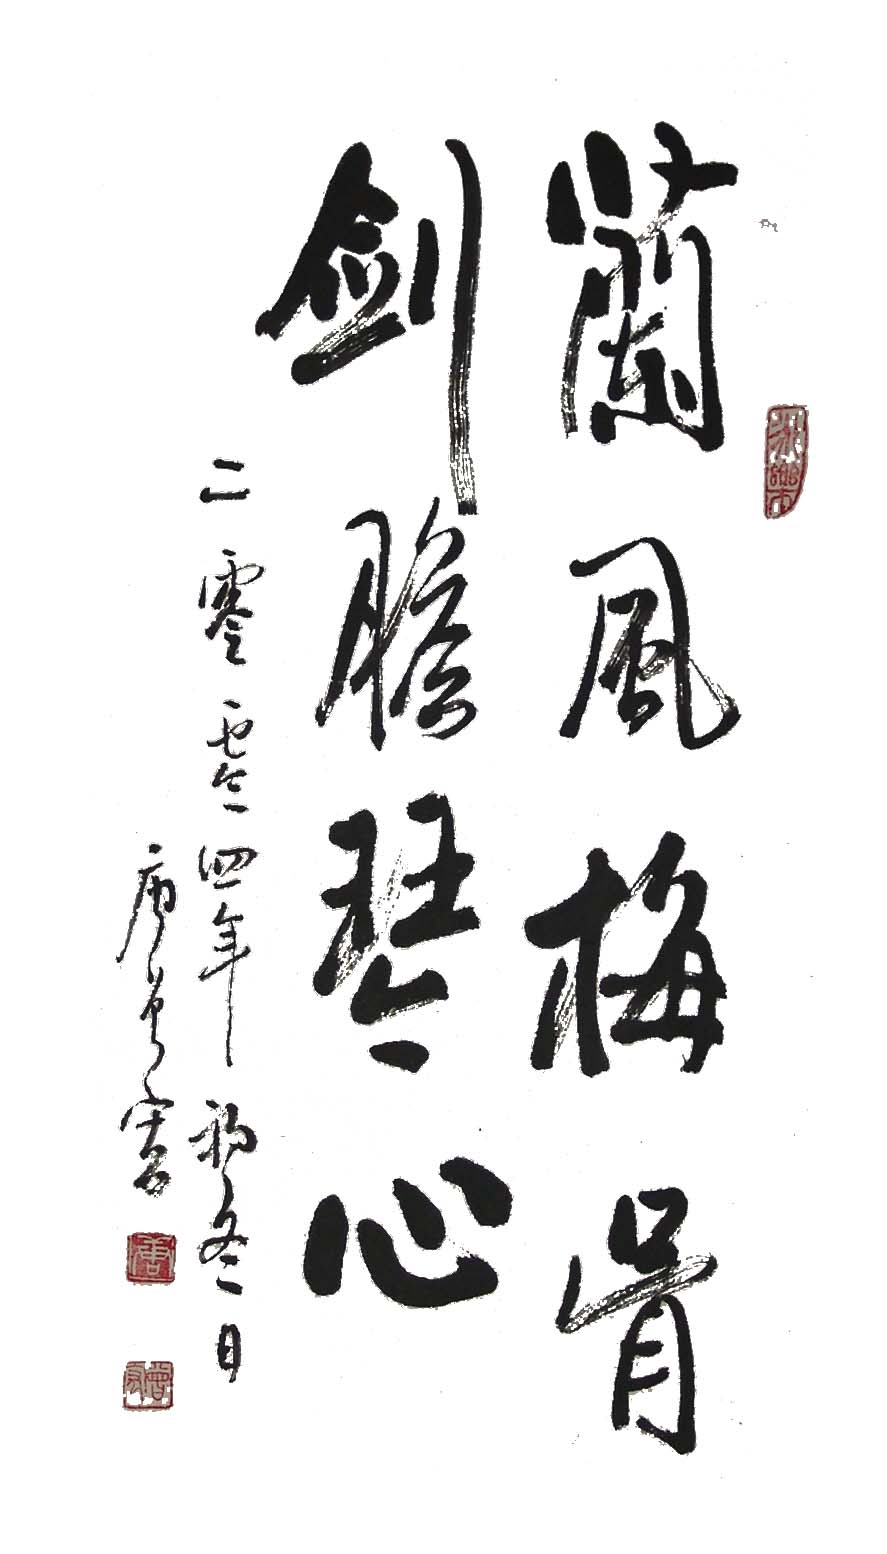 蘭風梅骨
劍膽琴心
二零零四年初冬日
唐